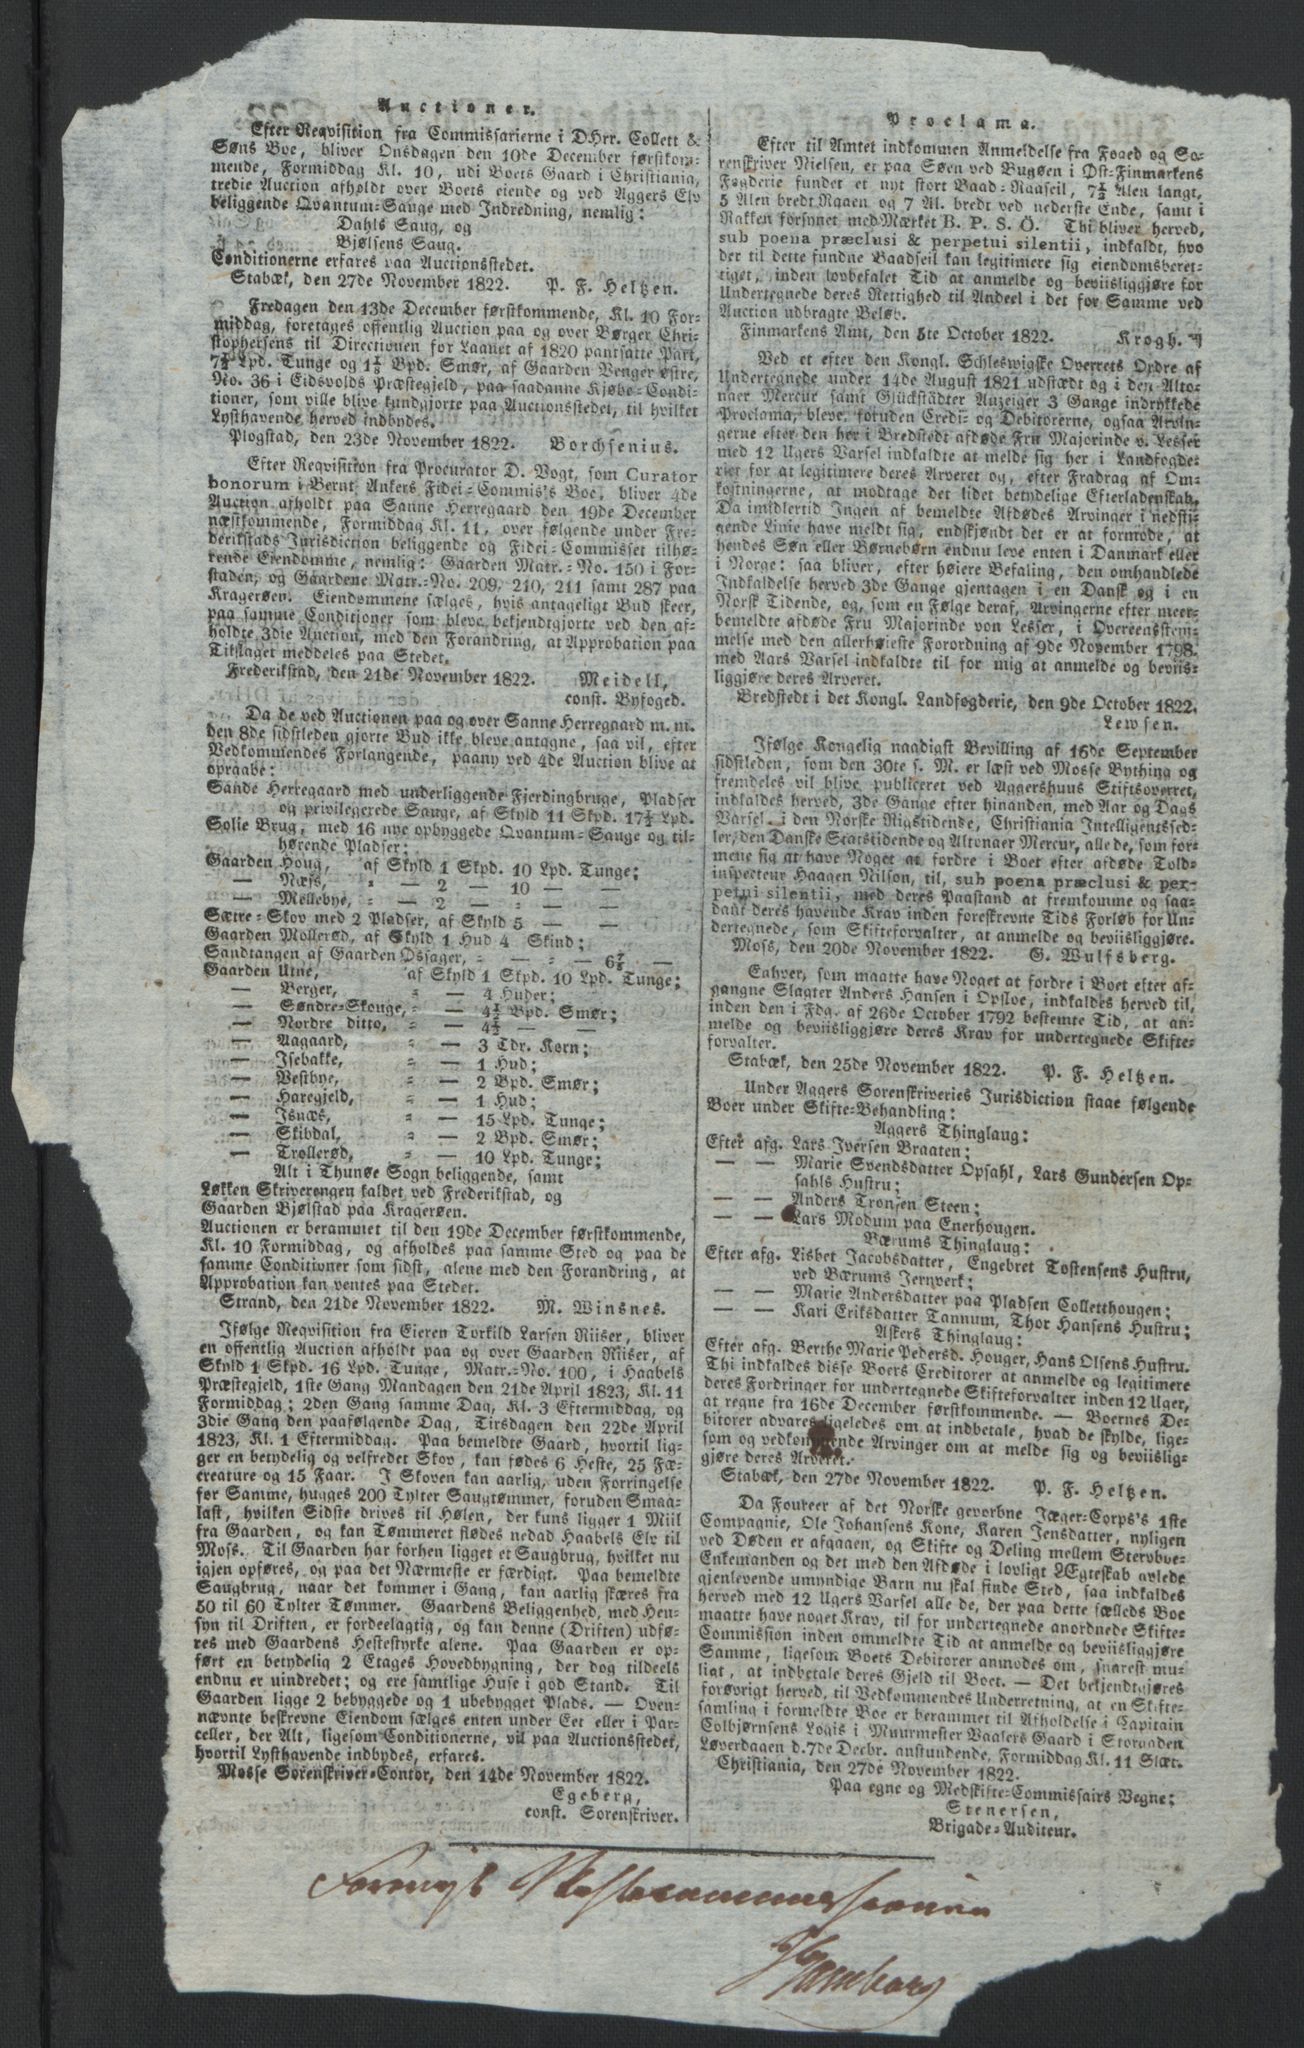 Auctioner.
Efter Reqvisition fra Commissarierne i DHrr. Collett &
Søns Boe, bliver Onsdagen den 10de December førstkom-
mende, Formiddag Kl. 10, udi Boets Gaard i Christiania,
tredie Auction afholdt over Boets eiende og ved Aggers Elv
beliggende Qvantum-Sauge med Indredning, nemlig:
Dahls Saug, og
Bjølsens Saug.
Conditionerne erfares paa Auctionsstedet.
Stabæk, den 27de November 1822. P. F. Heltzen.
Fredagen den 13de December førstkommende, Kl. 10 For-
middag, foretages offentlig Auction paa og over Børger Chri-
stophersens til Directionen for Laanet af 1820 pantsatte Part,
7½ Lpd. Tunge og 1½ Bpd. Smør, af Gaarden Venger østre,
No. 36 i Eidsvolds Præstegjeld, paa saadanne Kjøbe-Condi-
tioner, som ville blive kundgjorte paa Auctionsstedet, til hvilket
Lysthavende herved indbydes.
Plogstad, den 23de November 1822. Borchsenius.
Efter Reqvisition fra Procurator D. Vogt, som Curator
bonorum i Bernt Ankers Fidei-Commis's Boe, bliver 4de
Auction afholdt paa Sanne Herregaard den 19de December
næstkommende, Formiddag Kl. 11, over følgende under Fre-
derikstads Jurisdiction beliggende og Fidei-Commisset tilhø-
rende Eiendomme, nemlig: Gaarden Matr.-No. 150 i For-
staden, og Gaardene Matr.-No. 209, 210, 211 samt 287 paa
Kragerøen. Eiendommene sælges, hvis antageligt Bud skeer,
paa samme Conditioner som bleve bekjendtgjorte ved den af-
holdte 3die Auction, med den Forandring, at Approbation paa
Tilslaget meddeles paa Stedet.
Frederikstad, den 21de November 1822. Meidell,
const. Byfoged.
Da de ved Auctionen paa og over Sanne Herregaard m. m.
den 8de sidstleden gjorte Bud ikke bleve antagne, saa vil, efter
Vedkommendes Forlangende, paany ved 4de Auction blive at
opraabe:
Sande Herregaard med underliggende Fjerdingbruge, Pladser
og privilegerede Sauge, af Skyld 11 Skpd. 17½ Lpd.
Solie Brug, med 16 nye opbyggede Qvantum-Sauge og til-
hørende Pladser;
Gaarden Houg, af Skyld 1 Skpd. 10 Lpd. Tunge;
— Næfs, " — 2 — 10 — —
— Mellebye, " — 2 — " — —
Sætre-Skov med 2 Pladser, af Skyld 5 — —
Gaarden Mollerød, af Skyld 1 Hud 4 Skind;
Sandtangen af Gaarden Ossager, " — " — 6⅞ —
Gaarden Utne, af Skyld 1 Skpd. 10 Lpd. Tunge;
— Berger, " — 4 Huder;
— Søndre-Skouge, " — 4½ Bpd. Smør;
— Nordre ditto, " — 4½ — —
— Aagaard, " — 3 Tdr. Korn;
— Isebakke, " — 1 Hud;
— Vestbye, " — 2 Bpd. Smør;
— Haregjeld, " — 1 Hud;
— Isnæs, " — 15 Lpd. Tunge;
— Skibdal, " — 2 Bpd. Smør;
— Trollerød, " — 10 Lpd. Tunge;
Alt i Thunøe Sogn beliggende, samt
Løkken Skriverengen kaldet, ved Frederikstad, og
Gaarden Bjølstad paa Kragerøen.
Auctionen er berammet til den 19de December førstkommende,
Kl. 10 Formiddag, og afholdes paa samme Sted og paa de
samme Conditioner som sidst, alene med den Forandring, at
Approbation kan ventes paa Stedet.
Strand, den 21de November 1822. M. Winsnes.
Ifølge Reqvisition fra Eieren Torkild Larsen Riiser, bliver
en offentlig Auction afholdt paa og over Gaarden Riiser, af
Skyld 1 Skpd. 16 Lpd. Tunge, Matr.-No. 100, i Haabels
Præstegjeld, 1ste Gang Mandagen den 21de April 1823, Kl. 11
Formiddag; 2den Gang samme Dag, Kl. 3 Eftermiddag, og
3die Gang den paafølgende Dag, Tirsdagen den 22de April
1823, Kl. 1 Eftermiddag. Paa bemeldte Gaard, hvortil lig-
ger en betydelig og velfredet Skov, kan fødes 6 Heste, 25 Fæ-
creature og 15 Faar. I Skoven kan aarlig, uden Forringelse
for Samme, hugges 200 Tylter Saugtømmer, foruden Smaa-
last, hvilken Sidste drives til Hølen, der kuns ligger 1 Miil
fra Gaarden, og kan Tømmeret flødes nedad Haabels Elv til
Moss. Til Gaarden har forhen ligget et Saugbrug, hvilket nu
igjen opføres, og paa det Nærmeste er færdigt. Paa bemeldte
Saugbrug, naar det kommer i Gang, kan aarlig skæres fra
50 til 60 Tylter Tømmer. Gaardens Beliggenhed, med Hen-
syn til Driften, er fordeelagtig, og kan denne (Driften) udfø-
res med Gaardens Hestestyrke alene. Paa Gaarden er op-
ført en betydelig 2 Etages Hovedbygning, der dog tildeels
endnu er uindredet; og ere samtlige Huse i god Stand. Til
Gaarden ligge 2 bebyggede og 1 ubebygget Plads. — Oven-
nævnte beskrevne Eiendom sælges enten under Eet eller i Par-
celler, der Alt, ligesom Conditionerne, vil paa Auctionsstedet,
hvortil Lysthavende indbydes, erfares.
Mosse Sorenskriver-Contor, den 14de November 1822.
Egeberg,
const. Sorenskriver.
Proclama.
Efter til Amtet indkommen Anmeldelse fra Foged og So-
renskriver Nielsen, er paa Søen ved Bugøen i Øst-Finmarkens
Fogderie fundet et nyt stort Baad-Raaseil, 7½ Alen langt,
5 Alen bredt Raaen og 7 Al. bredt ved nederste Ende, samt i
Nakken forsynet med Mærket B. P. S. Ö. Thi bliver herved,
sub poena præclusi & perpetui silentii, indkaldt, hvo
der til dette fundne Baadseil kan legitimere sig eiendomsberet-
tiget, inden lovbefalet Tid at anmelde og beviisliggjøre for
Undertegnede deres Rettighed til Andeel i det for Samme ved
Auction udbragte Beløb.
Finmarkens Amt, den 5te October 1822. Krogh.
Ved et efter den Kongl. Schleswigske Overrets Ordre af
Undertegnede under 14de August 1821 udstædt og i den Alto-
naer Mercur samt Glückstädter Anzeiger 3 Gange indrykkede
Proclama, bleve, foruden Credi- og Debitorerne, ogsaa Arvin-
gerne efter den her i Bredstedt afdøde Fru Majorinde v. Lesser
med 12 Ugers Varsel indkaldte at melde sig her i Landfogde-
riet for at legitimere deres Arveret og, efter Fradrag af Om-
kostningerne, at modtage det lidet betydelige Efterladenskab.
Da imidlertid Ingen af bemeldte Afdødes Arvinger i nedsti-
gende Linie have meldt sig, endskjøndt det er at formode, at
hendes Søn eller Børnebørn endnu leve enten i Danmark eller
i Norge: saa bliver, efter høiere Befaling, den omhandlede
Indkaldelse herved 3de Gange gjentagen i en Dansk og i en
Norsk Tidende, og, som en Følge deraf, Arvingerne efter meer-
bemeldte afdøde Fru Majorinde von Lesser, i Overeensstem-
melse med den allerhøieste Forordning af 9de November 1798,
med Aars Varsel indkaldte til for mig at anmelde og beviis-
liggjøre deres Arveret.
Bredstedt i det Kongl. Landfogderie, den 9de October 1822.
Lewsen.
Ifølge Kongelig naadigst Bevilling af 16de September
sidstleden, som den 30te s. M. er læst ved Mosse Bything og
fremdeles vil blive publiceret ved Aggershuus Stiftsoverret,
indkaldes herved, 3de Gange efter hinanden, med Aar og Dags
Varsel, i den Norske Rigstidende, Christiania Intelligentssed-
ler, den Danske Statstidende og Altonaer Mercur, alle de, som for-
mene sig at have Noget at fordre i Boet efter afdøde Told-
inspecteur Haagen Nilson, til, sub poena præclusi & per-
petui silentii, med deres Paastand at fremkomme og saa-
dant deres havende Krav inden foreskrevne Tids Forløb for Un-
dertegnede, som Skifteforvalter, at anmelde og beviisliggjøre.
Moss, den 20de November 1822. G. Wulfsberg.
Enhver, som maatte have Noget at fordre i Boet efter af-
gangne Slagter Anders Hansen i Opsloe, indkaldes herved til,
inden den i Fdg. af 26de October 1792 bestemte Tid, at an-
melde og beviisliggjøre deres Krav for undertegnede Skifte-
forvalter.
Stabæk, den 25de November 1822. P. F. Heltzen.
Under Aggers Sorenskriveries Jurisdiction staae følgende
Boer under Skifte-Behandling:
Aggers Thinglaug:
Efter afg. Lars Iversen Braaten;
— — Marie Svendsdatter Opsahl, Lars Gundersen Op-
sahls Hustru;
— — Anders Tronsen Steen;
— — Lars Modum paa Enerhougen.
Bærums Thinglaug:
Efter afg. Lisbet Jacobsdatter, Engebret Tostensens Hustru,
ved Bærums Jernverk;
— — Marie Andersdatter paa Pladsen Colletthougen;
— — Kari Eriksdatter Tannum, Thor Hansens Hustru;
Askers Thinglaug:
Efter afg. Berthe Marie Pedersd. Houger, Hans Olsens Hustru.
Thi indkaldes disse Boers Creditorer at anmelde og legitimere
deres Fordringer for undertegnede Skifteforvalter inden 12 Uger,
at regne fra 16de December førstkommende. — Boernes De-
bitorer advares ligeledes om at indbetale, hvad de skylde, lige-
som og vedkommende Arvinger om at melde sig og beviislig-
gjøre deres Arveret.
Stabæk, den 27de November 1822. P. F. Heltzen.
Da Foureer af det Norske gevorbne Jæger-Corps's 1ste
Compagnie, Ole Johansens Kone, Karen Jensdatter, nyligen
ved Døden er afgaaen, og Skifte og Deling mellem Stervboe-
Enkemanden og det med den Afdøde i lovligt Ægteskab avlede
gjenlevende umyndige Barn nu skal finde Sted, saa indkaldes
herved med 12 Ugers Varsel alle de, der paa dette fælleds Boe
maatte have noget Krav, til for undertegnede anordnede Skifte-
Commission inden ommeldte Tid at anmelde og beviisliggjøre
Samme, ligesom Boets Debitorer anmodes om, snarest mu-
ligt, at indbetale deres Gjeld til Boet. — Det bekjendtgjøres
forøvrigt herved, til Vedkommendes Underretning, at en Skifte-
samling i formeldte Boe er berammet til Afholdelse i Capitain
Colbjørnsens Logis i Muurmester Vaalers Gaard i Storgaden
Løverdagen d. 7de Decbr. anstundende, Formiddag Kl. 11 Slæt.
Christiania, den 27de November 1822.
Paa egne og Medskifte-Commissairs Vegne:
Stenersen,
Brigade-Auditeur.